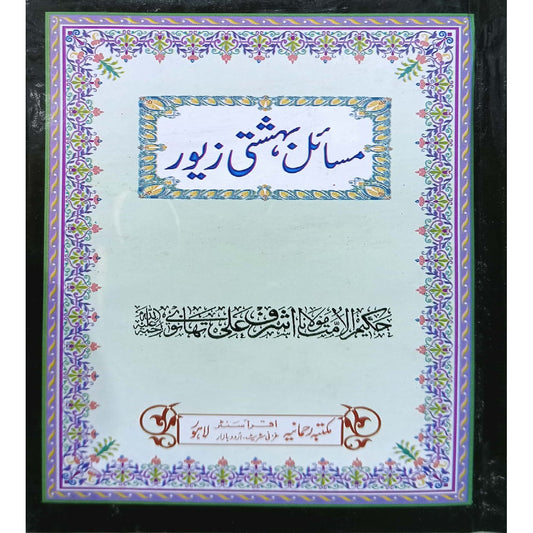 مسائل بہشتی زیور
حکیم الامت مولانا اشرف علی تھانوی رحمۃ اللہ علیہ
مکتبہ رحمانیہ اقرأ سنٹر غزنی سٹریٹ۔ اردو بازار لاہور